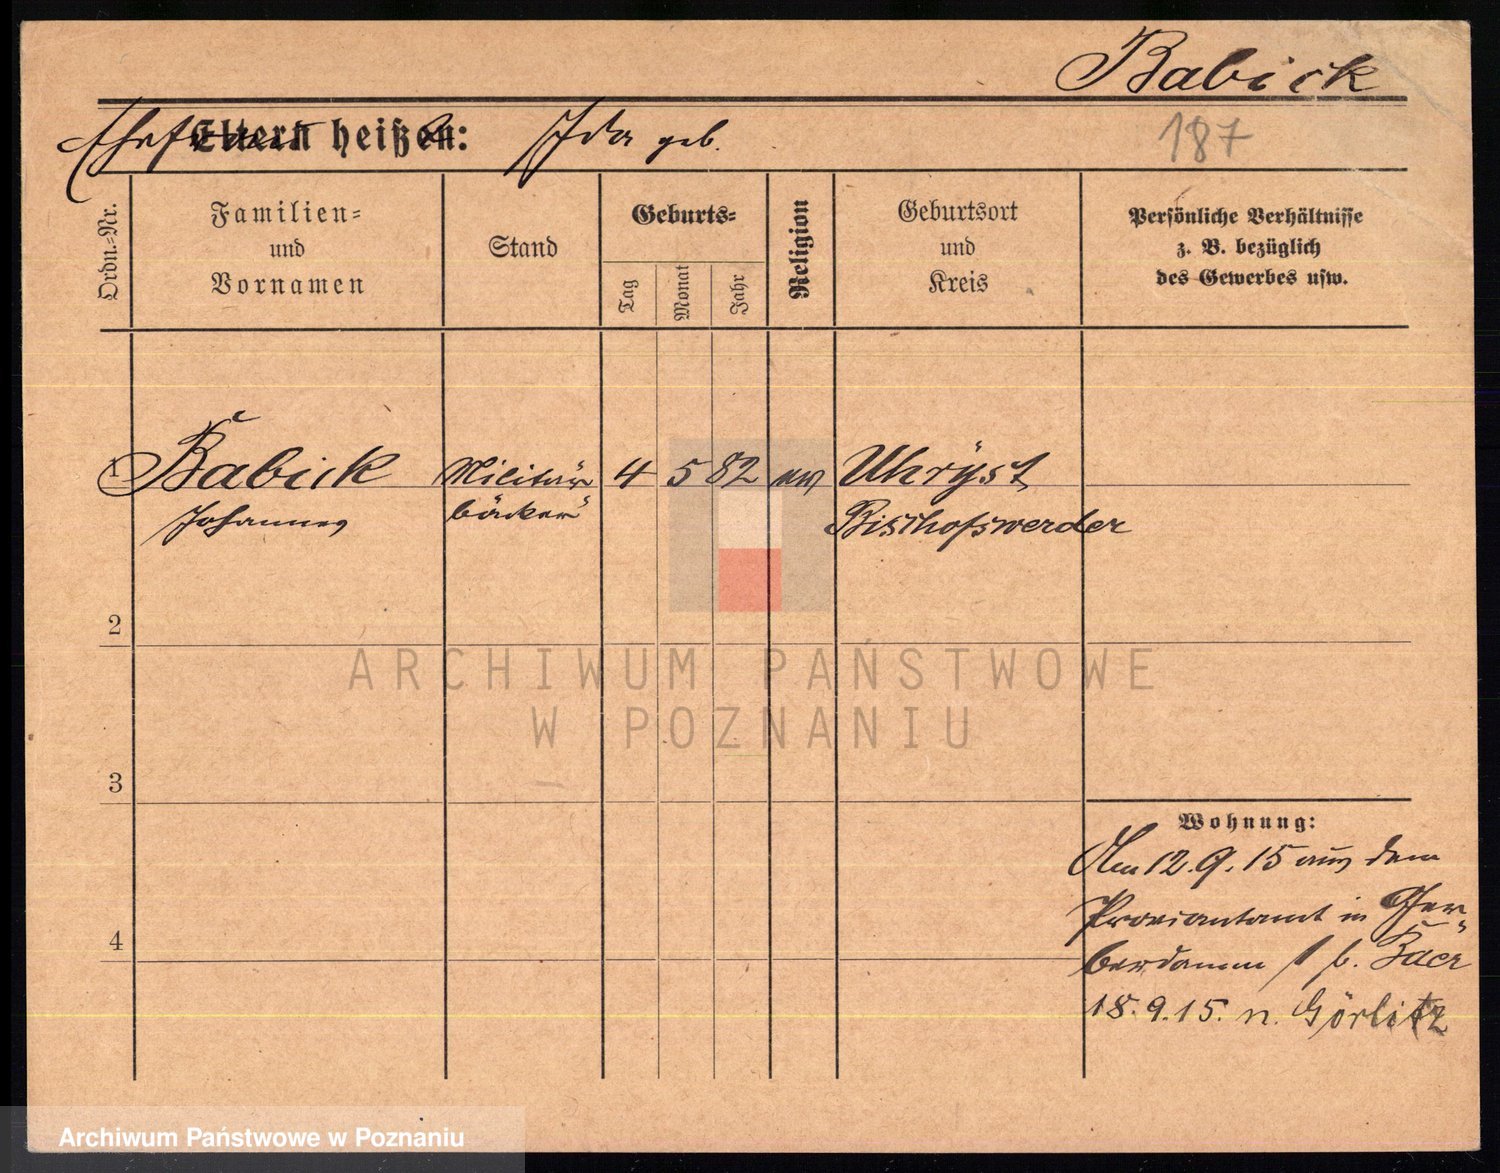 Babick
Ehefrau Eltern heißen: Ida geb.
187
Ordn.-Nr.
Familien-
und
Vornamen
Stand
Geburts-
Tag
Monat
Jahr
Religion
Geburtsort
und
Kreis
Persönliche Verhältnisse
z. B. bezüglich
des Gewerbes usw.
1 Babick Militär 4 5 82 ev Uhryst
Johannes bäcker Bischofswerder
2
ARCHIWUM PAŃSTWOWE
W POZNANIU
3
Wohnung:
Am 12.9.15 aus dem
Proviantamt in Ger-
berdamm 1 b.
4
18.9.15. n. Görlitz
Archiwum Państwowe w Poznaniu